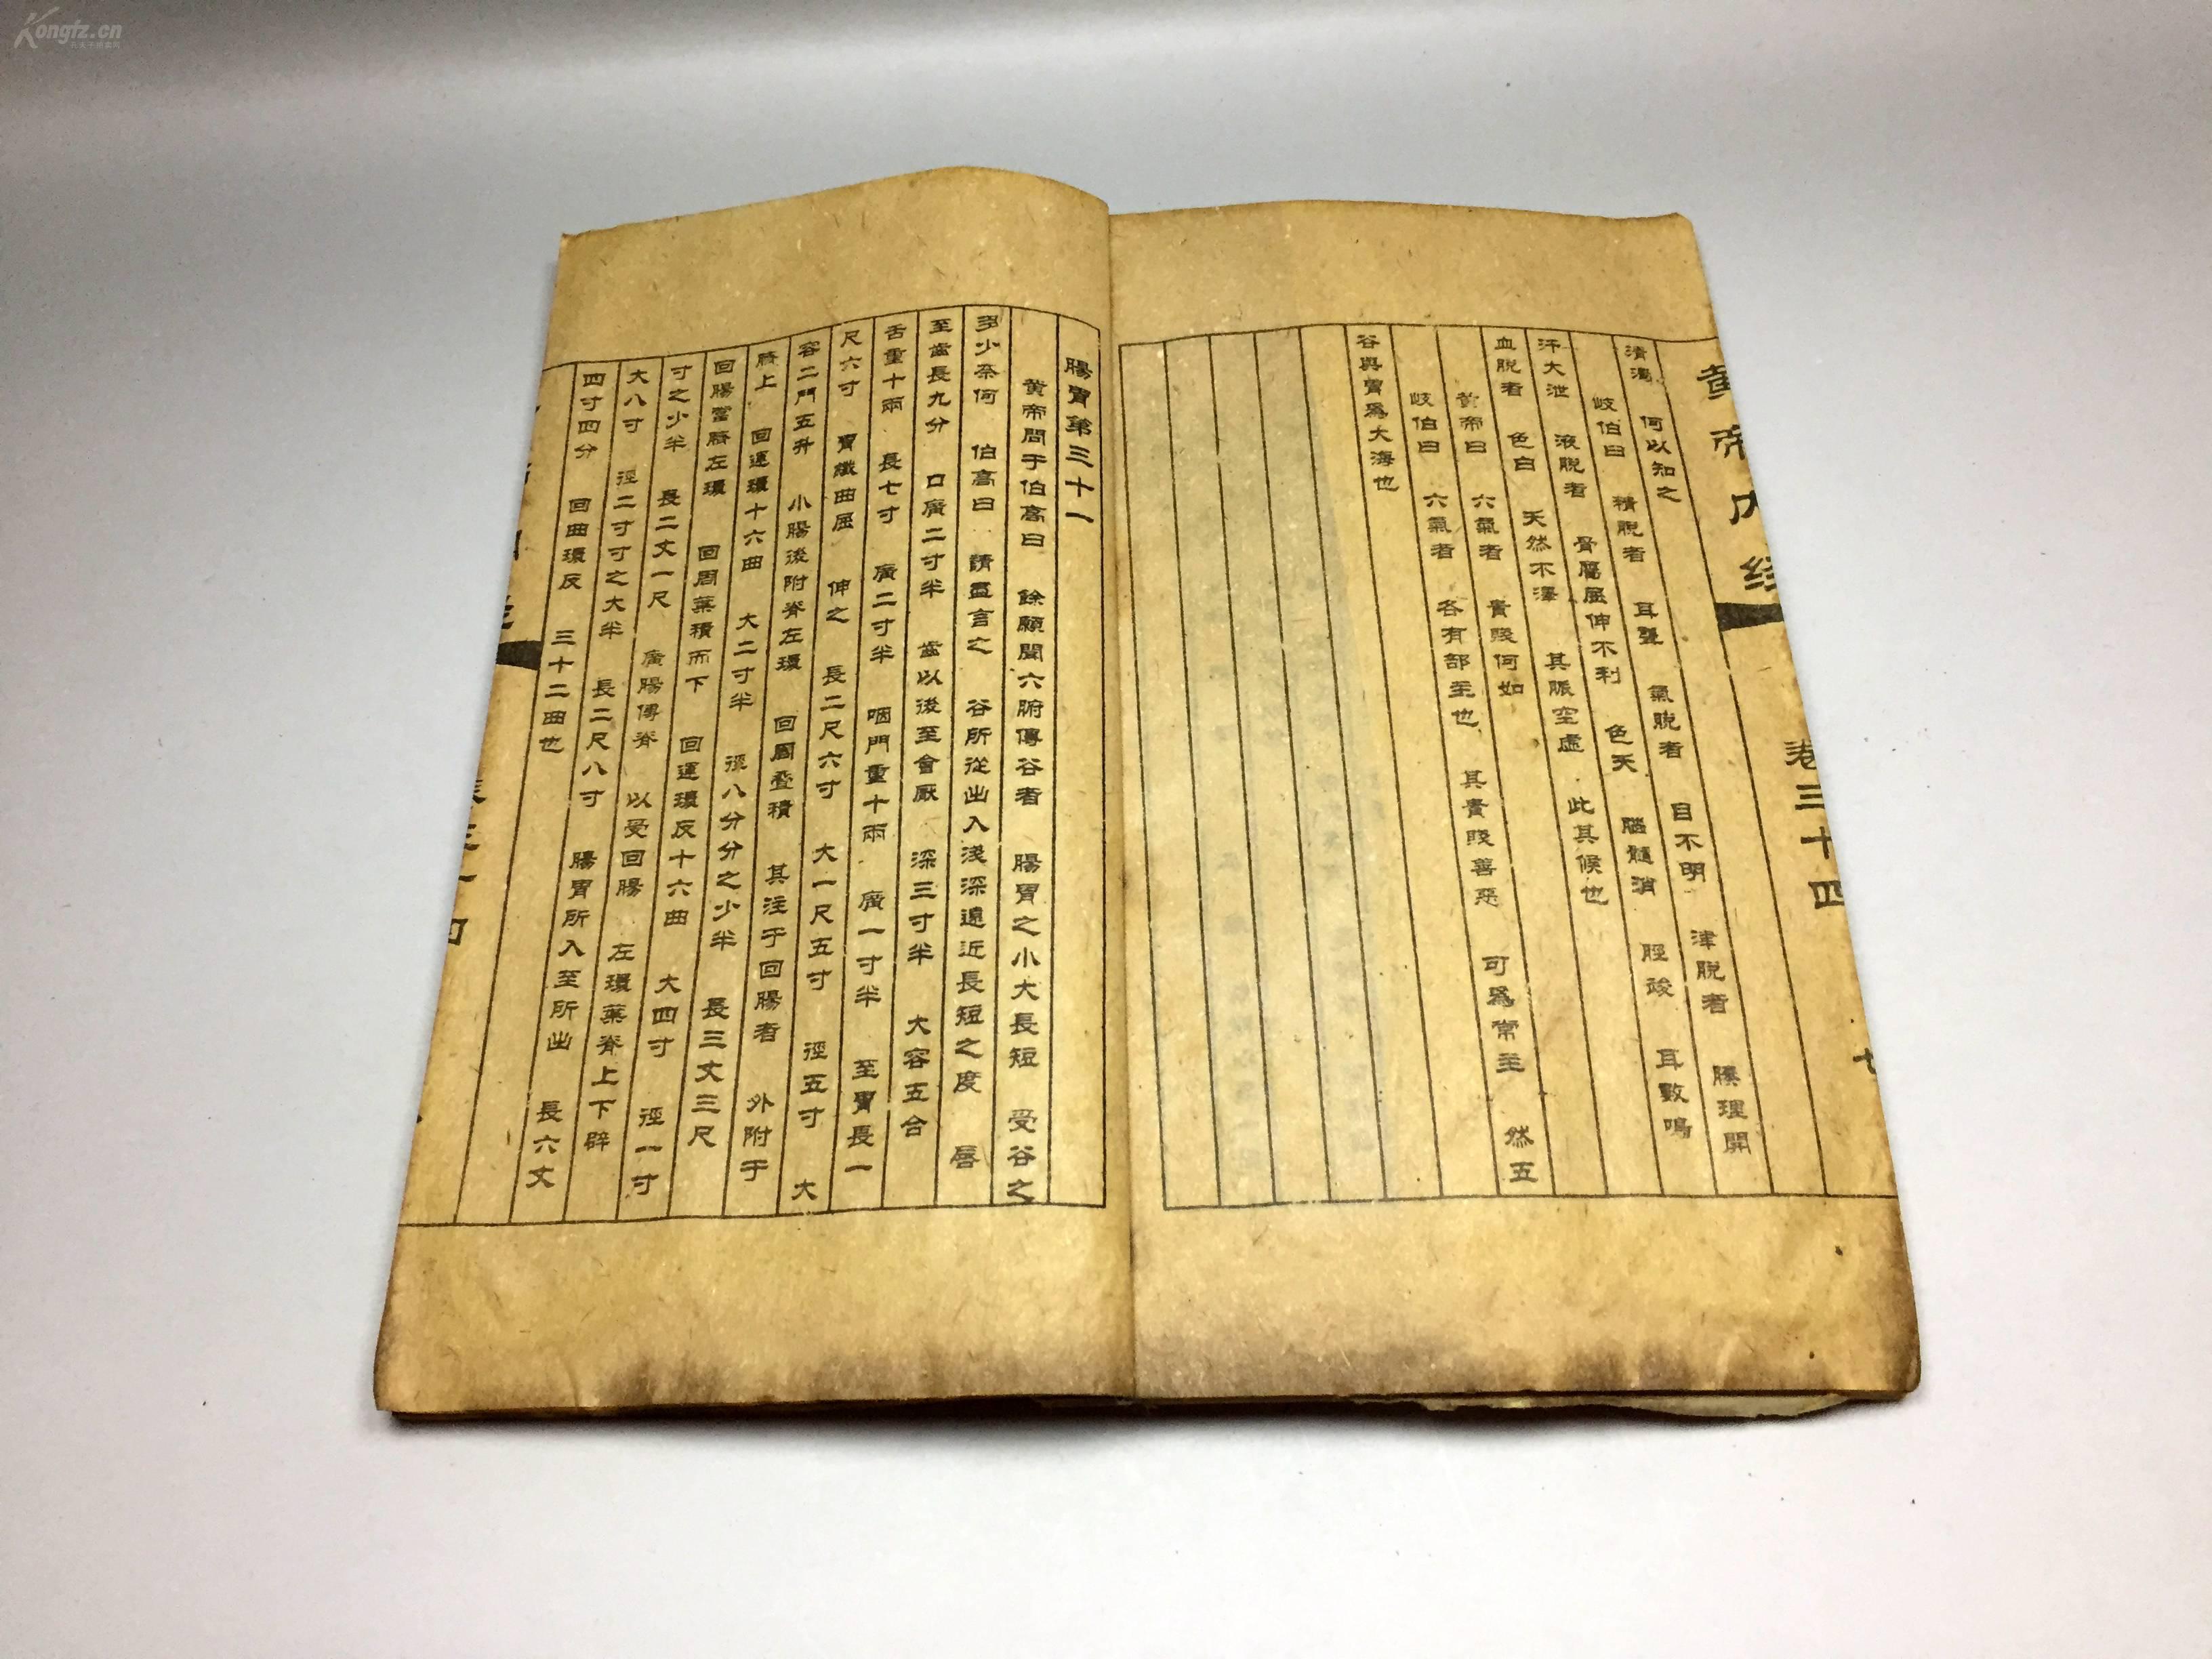 Kongfz.cn
黄帝内经 卷三十四
清濁 何以知之
岐伯曰 精脱者 耳聾 氣脱者 目不明 津脱者 腠理開
汗大泄 液脱者 骨屬屈伸不利 色夭 腦髓消 脛酸 耳數鳴
血脱者 色白 夭然不澤 其脈空虚 此其候也
黄帝曰 六氣者 貴賤何如
岐伯曰 六氣者 各有部主也 其貴賤善惡 可爲常主 然五
谷與胃爲大海也
腸胃第三十一
黄帝問于伯高曰 餘願聞六腑傳谷者 腸胃之小大長短 受谷之
多少奈何 伯高曰 請盡言之 谷所從出入淺深遠近長短之度 唇
至齒長九分 口廣二寸半 齒以後至會厭 深三寸半 大容五合
舌重十兩 長七寸 廣二寸半 咽門重十兩 廣一寸半 至胃長一
尺六寸 胃纖曲屈 伸之 長二尺六寸 大一尺五寸 徑五寸 大
容二鬥五升 小腸後附脊左環 回周叠積 其注于回腸者 外附于
臍上 回運環十六曲 大二寸半 徑八分分之少半 長三丈三尺
回腸當臍左環 回周葉積而下 回運環反十六曲 大四寸 徑一寸
寸之少半 長二丈一尺 廣腸傳脊 以受回腸 左環葉脊上下辟
大八寸 徑二寸寸之大半 長二尺八寸 腸胃所入至所出 長六丈
四寸四分 回曲環反 三十二曲也